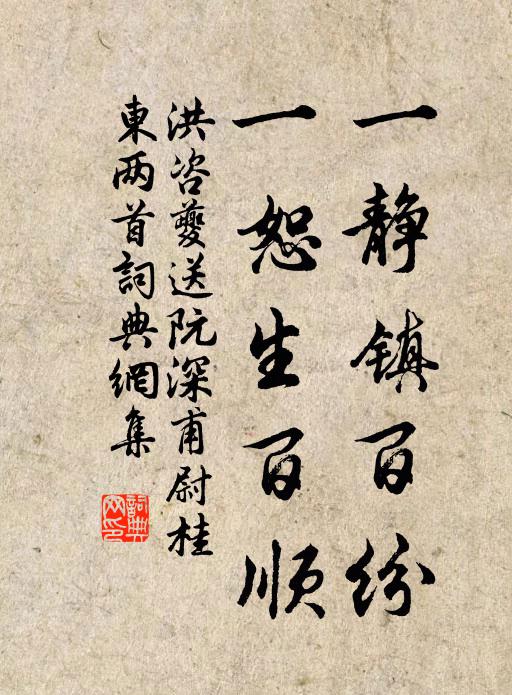 一静镇百纷
一恕生百顺
洪咨夔送阮深甫尉桂
東两首詞典網集
詞典网印